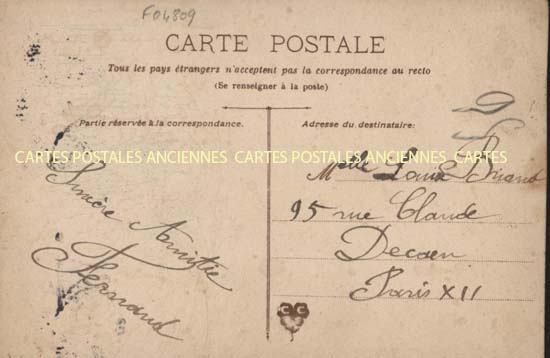 F04809
CARTE POSTALE
Tous les pays étrangers n'acceptent pas la correspondance au recto
(Se renseigner à la poste)
Partie réservée à la correspondance.
Sincère Amitié
Fernand
Adresse du destinataire:
Mlle Louise Briand
95 rue Claude
Decaen
Paris XII
CC
CARTES POSTALES ANCIENNES CARTES POSTALES ANCIENNES CARTES